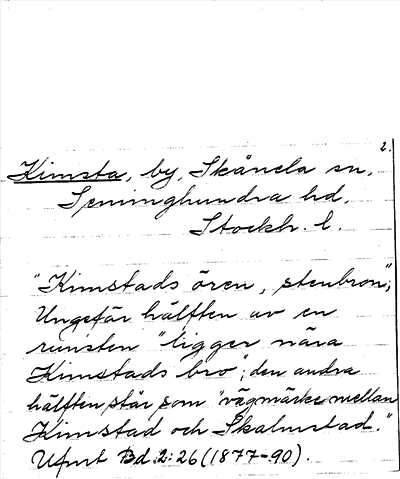 2.
Kimsta, by, Skånela sn,
Seminghundra hd,
Stockh. l.
"Kimstads ören, stenbron";
Ungefär hälften av en
runsten "ligger nära
Kimstads bro"; den andra
hälften står som "vägmärke mellan
Kimstad och Skalmstad."
Ufmt Bd 2:26 (1877-90).